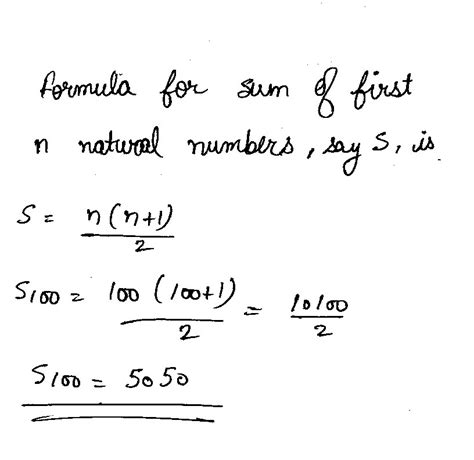 Formula for sum of first
n natural numbers, say S, is
S = n(n+1)/2
S100 = 100 (100+1)/2 = 10100/2
S100 = 5050